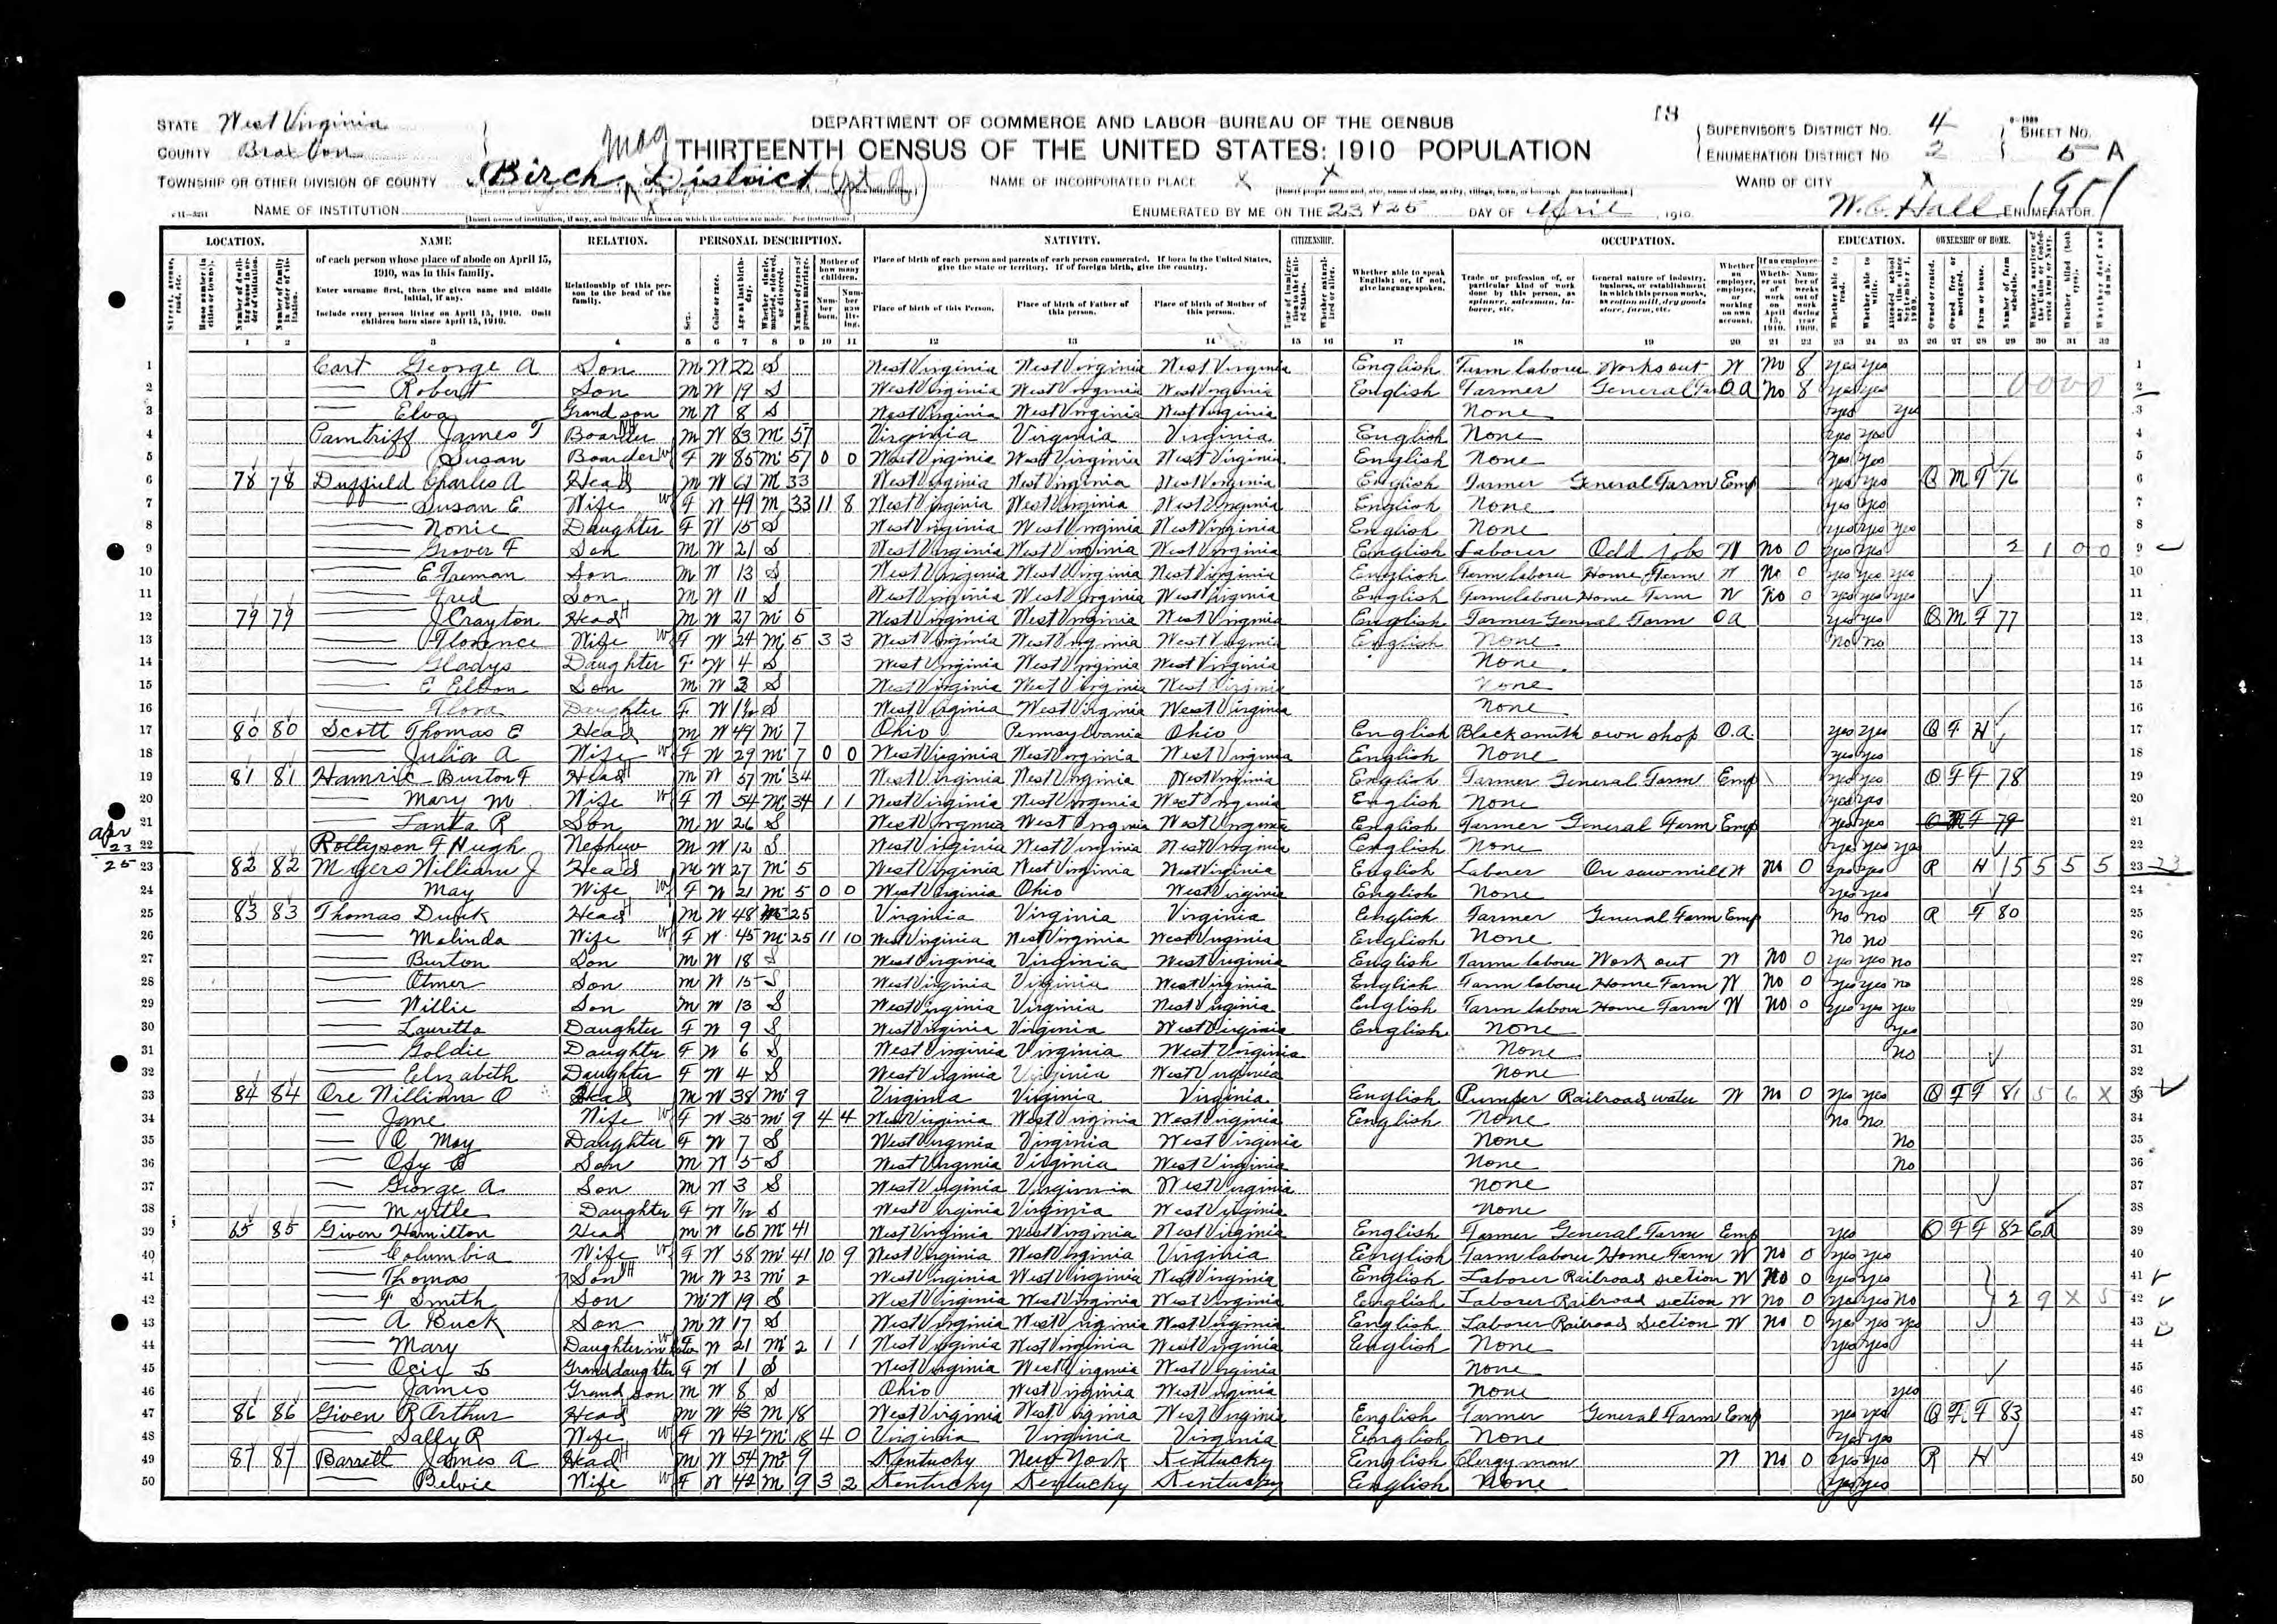 DEPARTMENT OF COMMERCE AND LABOR-BUREAU OF THE CENSUS
THIRTEENTH CENSUS OF THE UNITED STATES: 1910 POPULATION
STATE West Virginia
COUNTY Braxton
TOWNSHIP OR OTHER DIVISION OF COUNTY Birch Mag District (pt of)
NAME OF INSTITUTION X
NAME OF INCORPORATED PLACE X
ENUMERATED BY ME ON THE 23 + 25 DAY OF April, 1910.
SUPERVISOR'S DISTRICT NO. 4
ENUMERATION DISTRICT NO 2
SHEET NO. 5 A
WARD OF CITY X
W.C. Hall ENUMERATOR.
LOCATION. NAME RELATION. PERSONAL DESCRIPTION. NATIVITY. CITIZENSHIP. OCCUPATION. EDUCATION. OWNERSHIP OF HOME.
of each person whose place of abode on April 15, 1910, was in this family.
Enter surname first, then the given name and middle initial, if any.
Include every person living on April 15, 1910. Omit children born since April 15, 1910.
Relationship of this person to the head of the family.
Place of birth of each person and parents of each person enumerated. If born in the United States, give the state or territory. If of foreign birth, give the country.
Place of birth of this Person. Place of birth of Father of this person. Place of birth of Mother of this person.
Whether able to speak English; or, if not, give language spoken.
1 2 3 4 5 6 7 8 9 10 11 12 13 14 15 16 17 18 19 20 21 22 23 24 25 26 27 28 29 30 31 32
1 Cart George A Son M W 22 S West Virginia West Virginia West Virginia English Farm laborer Works out W No 8 yes yes
2 Robert Son M W 19 S West Virginia West Virginia West Virginia English Farmer General Farm OA No 8 yes yes
3 Elva Grand son M W 8 S West Virginia West Virginia West Virginia None yes yes
4 James T Boarder M W 83 M1 57 Virginia Virginia Virginia English None yes yes
5 Susan Boarder F W 85 M1 57 0 0 West Virginia West Virginia West Virginia English None yes yes
6 78 78 Duffield Charles A Head M W 61 M 33 West Virginia West Virginia West Virginia English Farmer General Farm Emp yes yes O M F 76
7 Susan E Wife F W 49 M 33 11 8 West Virginia West Virginia West Virginia English None yes yes
8 Nonie Daughter F W 15 S West Virginia West Virginia West Virginia English None yes yes yes
9 Grover F Son M W 21 S West Virginia West Virginia West Virginia English Laborer Odd jobs W No 0 yes yes 2 1 0 0
10 E Freman Son M W 13 S West Virginia West Virginia West Virginia English Farm laborer Home Farm W No 0 yes yes yes
11 Fred Son M W 11 S West Virginia West Virginia West Virginia English Farm laborer Home Farm W No 0 yes yes yes
12 79 79 J Crayton Head M W 27 M1 5 West Virginia West Virginia West Virginia English Farmer General Farm OA yes yes O M F 77
13 Florence Wife F W 24 M1 5 3 3 West Virginia West Virginia West Virginia English None No no
14 Gladys Daughter F W 4 S West Virginia West Virginia West Virginia None
15 E Elbon Son M W S West Virginia West Virginia West Virginia None
16 Flora Daughter F W S West Virginia West Virginia West Virginia None
17 80 80 Scott Thomas E Head M W 49 M1 7 Ohio Pennsylvania Ohio English Blacksmith own shop O.A. yes yes O F H
18 Julia A Wife F W 29 M1 7 0 0 West Virginia West Virginia West Virginia English None yes yes
19 81 81 Hamric Burton F Head M W 57 M1 34 West Virginia West Virginia West Virginia English Farmer General Farm Emp yes yes O F F 78
20 Mary M Wife F W 54 M1 34 1 1 West Virginia West Virginia West Virginia English None yes yes
21 Santa R Son M W 26 S West Virginia West Virginia West Virginia English Farmer General Farm Emp yes yes O M F 79
22 Rollyson F Hugh Nephew M W 12 S West Virginia West Virginia West Virginia English None yes yes yes
23 82 82 Myers William J Head M W 27 M1 5 West Virginia West Virginia West Virginia English Laborer On saw mill W No 0 yes yes R H 15 5 5 5
24 May Wife F W 21 M1 5 0 0 West Virginia Ohio West Virginia English None yes yes
25 83 83 Thomas Dunk Head M W 48 M1 25 Virginia Virginia Virginia English Farmer General Farm Emp No no R F 80
26 Malinda Wife F W 45 M1 25 11 10 West Virginia West Virginia West Virginia English None No no
27 Burton Son M W 18 S West Virginia Virginia West Virginia English Farm laborer Work out W No 0 yes yes no
28 Otmer Son M W 15 S West Virginia Virginia West Virginia English Farm laborer Home Farm W No 0 yes yes no
29 Willie Son M W 13 S West Virginia Virginia West Virginia English Farm labour Home Farm W No 0 yes yes yes
30 Lauretta Daughter F W 9 S West Virginia Virginia West Virginia English None yes
31 Goldie Daughter F W 6 S West Virginia Virginia West Virginia None no
32 Elizabeth Daughter F W 4 S West Virginia Virginia West Virginia None
33 84 84 Ore William O Head M W 38 M1 9 Virginia Virginia Virginia English Pumper Railroad water W No 0 yes yes O F F 81 5 6 X
34 Jane Wife F W 35 M1 9 4 4 West Virginia West Virginia West Virginia English None No no
35 O May Daughter F W 7 S West Virginia Virginia West Virginia None No
36 Opy Son M W 5 S West Virginia Virginia West Virginia None No
37 George A. Son M W 3 S West Virginia Virginia West Virginia None
38 Myrtle Daughter F W 7/12 S West Virginia Virginia West Virginia None
39 85 85 Given Hamilton Head M W 65 M1 41 West Virginia West Virginia West Virginia English Farmer General Farm Emp yes O F F 82 CA
40 Columbia Wife F W 58 M1 41 10 9 West Virginia West Virginia Virginia English Farm laborer Home Farm W No 0 yes yes
41 Thomas Son M W 23 M1 2 West Virginia West Virginia West Virginia English Laborer Railroad section W No 0 yes yes
42 F Smith Son M W 19 S West Virginia West Virginia West Virginia English Laborer Railroad section W No 0 yes yes No 2 9 X 5
43 A Buck Son M W 17 S West Virginia West Virginia West Virginia English Laborer Railroad Section W No 0 yes yes yes
44 Mary Daughter in law F W 21 M1 2 1 1 West Virginia West Virginia West Virginia English None yes yes
45 Ocie Granddaughter F W 1 S West Virginia West Virginia West Virginia None
46 James Grand son M W 8 S Ohio West Virginia West Virginia None yes
47 86 86 Given R Arthur Head M W 43 M 18 West Virginia West Virginia West Virginia English Farmer General Farm Emp yes yes O F F 83
48 Sally R Wife F W 42 M1 18 4 0 Virginia Virginia Virginia English None yes yes
49 87 87 Barrett James A Head M W 54 M2 9 Kentucky New York Kentucky English Clergyman W No 0 yes yes R H
50 Belvie Wife F W 42 M 9 3 2 Kentucky Kentucky Kentucky English None yes yes